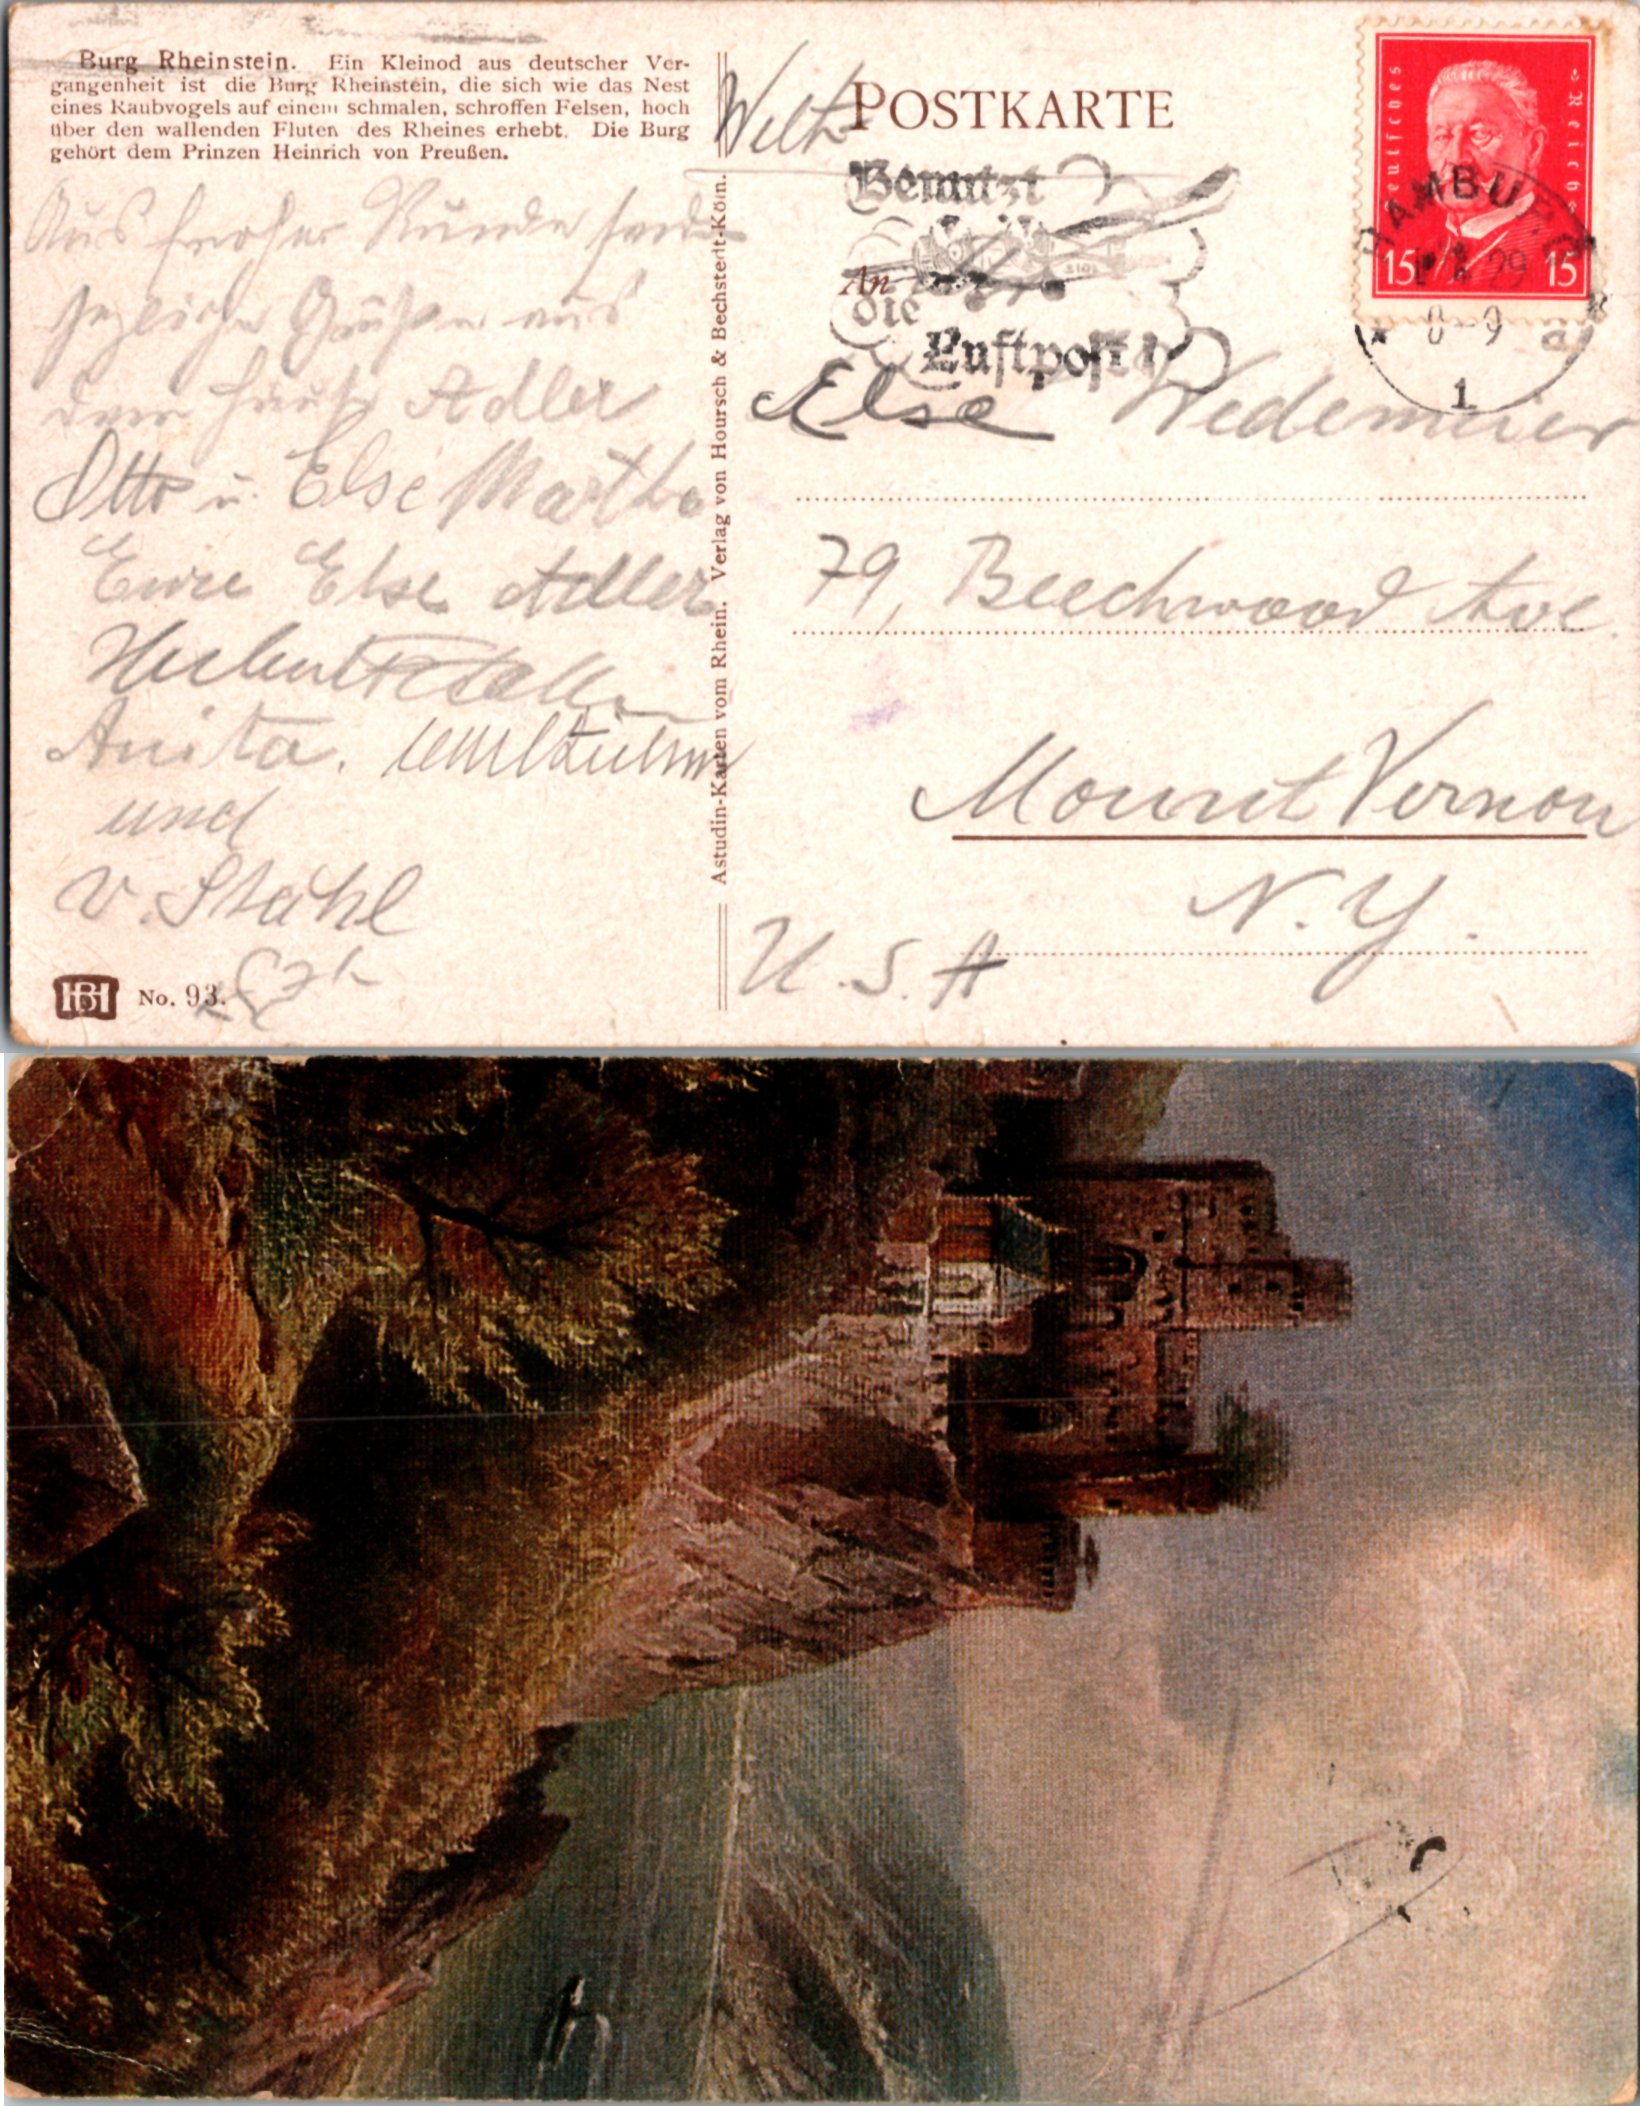 Burg Rheinstein. Ein Kleinod aus deutscher Ver-
gangenheit ist die Burg Rheinstein, die sich wie das Nest
eines Raubvogels auf einem schmalen, schroffen Felsen, hoch
über den wallenden Fluten des Rheines erhebt. Die Burg
gehört dem Prinzen Heinrich von Preußen.
Aus froher Runde
Grüße aus
dem Hause Adler
Otto u. Else Martha
Eure Else Adler
Anita.
und
v. Stahl
HB No. 93.
Astudin-Karten vom Rhein. Verlag von Hoursch & Bechstedt-Köln.
POSTKARTE
Benutzt
An
die
Luftpost!
Deutsches Reich
15 15
HAMBURG
29
8-9
1
Else Wedemeier
79, Beechwood Ave.
Mount Vernon
N. Y.
U. S. A